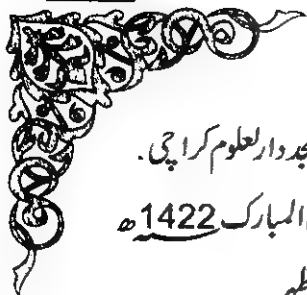 جد دارالعلوم کراچی.
المبارک 1422ھ
ظہر